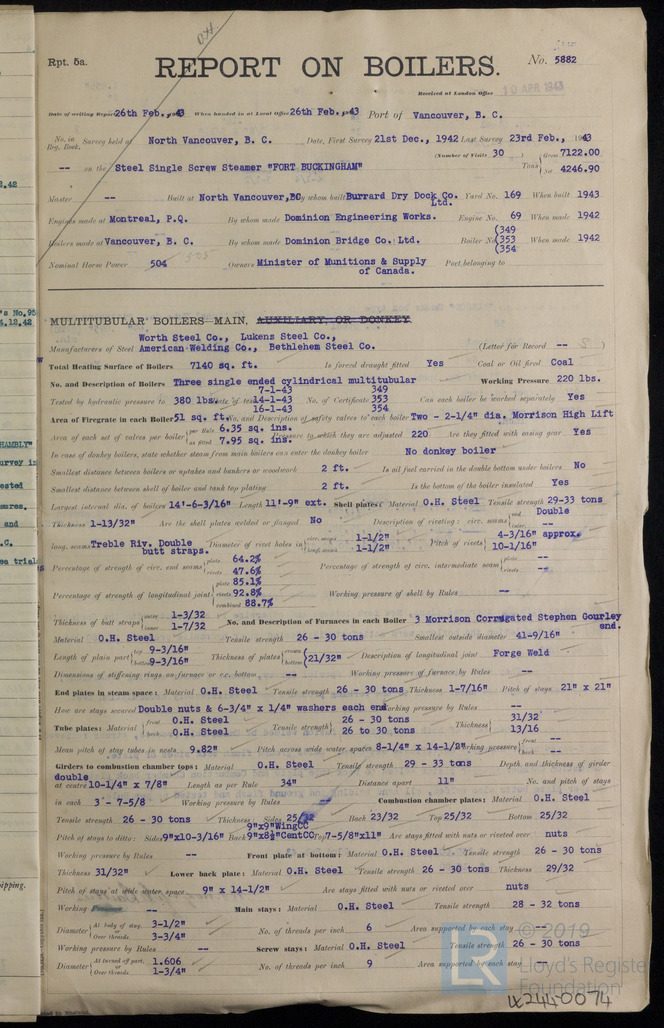 D.H.
Rpt. 5a.
REPORT ON BOILERS.
No. 5882
Received at London Office 10 APR 1943
Date of writing Report 26th Feb., 1943 When handed in at Local Office 26th Feb., 1943 Port of Vancouver, B. C.
No. in Reg. Book. Survey held at North Vancouver, B. C. Date, First Survey 21st Dec., 1942 Last Survey 23rd Feb., 1943
(Number of Visits 30 )
-- on the Steel Single Screw Steamer "FORT BUCKINGHAM" Tons { Gross 7122.00 Net 4246.90
Master -- Built at North Vancouver, BC By whom built Burrard Dry Dock Co. Ltd. Yard No. 169 When built 1943
Engines made at Montreal, P.Q. By whom made Dominion Engineering Works. Engine No. 69 When made 1942
Boilers made at Vancouver, B. C. By whom made Dominion Bridge Co. Ltd. Boiler No. (349 (353 (354 When made 1942
Nominal Horse Power 504 Owners Minister of Munitions & Supply of Canada. Port belonging to
MULTITUBULAR BOILERS—MAIN, AUXILIARY, OR DONKEY
Worth Steel Co., Lukens Steel Co.,
Manufacturers of Steel American Welding Co., Bethlehem Steel Co. (Letter for Record -- S )
Total Heating Surface of Boilers 7140 sq. ft. Is forced draught fitted Yes Coal or Oil fired Coal
No. and Description of Boilers Three single ended cylindrical multitubular Working Pressure 220 lbs.
Tested by hydraulic pressure to 380 lbs. Date of test 7-1-43 14-1-43 16-1-43 No. of Certificate 349 353 354 Can each boiler be worked separately Yes
Area of Firegrate in each Boiler 51 sq. ft. No. and Description of safety valves to each boiler Two - 2-1/4" dia. Morrison High Lift
Area of each set of valves per boiler { per Rule 6.35 sq. ins. as fitted 7.95 sq. ins. Pressure to which they are adjusted 220 Are they fitted with easing gear Yes
In case of donkey boilers, state whether steam from main boilers can enter the donkey boiler No donkey boiler
Smallest distance between boilers or uptakes and bunkers or woodwork 2 ft. Is oil fuel carried in the double bottom under boilers No
Smallest distance between shell of boiler and tank top plating 2 ft. Is the bottom of the boiler insulated Yes
Largest internal dia. of boilers 14'-6-3/16" Length 11'-9" ext. Shell plates: Material O.H. Steel Tensile strength 29-33 tons
Thickness 1-13/32" Are the shell plates welded or flanged No Description of riveting: circ. seams { end Double inter. --
long. seams Treble Riv. Double butt straps. Diameter of rivet holes in { circ. seams 1-1/2" long. seams 1-1/2" Pitch of rivets { 4-3/16" approx. 10-1/16"
Percentage of strength of circ. end seams { plate 64.2% rivets 47.6% Percentage of strength of circ. intermediate seam { plate -- rivets --
Percentage of strength of longitudinal joint { plate 85.1% rivets 92.8% combined 88.7% Working pressure of shell by Rules --
Thickness of butt straps { outer 1-3/32 inner 1-7/32 No. and Description of Furnaces in each Boiler 3 Morrison Corrugated Stephen Gourley end.
Material O.H. Steel Tensile strength 26 - 30 tons Smallest outside diameter 41-9/16"
Length of plain part { top 9-3/16" bottom 9-3/16" Thickness of plates { crown bottom (21/32" Description of longitudinal joint Forge Weld
Dimensions of stiffening rings on furnace or c.c. bottom -- Working pressure of furnace by Rules --
End plates in steam space: Material O.H. Steel Tensile strength 26 - 30 tons Thickness 1-7/16" Pitch of stays 21" x 21"
How are stays secured Double nuts & 6-3/4" x 1/4" washers each end Working pressure by Rules --
Tube plates: Material { front O.H. Steel back O.H. Steel Tensile strength { 26 - 30 tons 26 to 30 tons Thickness { 31/32" 13/16
Mean pitch of stay tubes in nests 9.82" Pitch across wide water spaces 8-1/4" x 14-1/2" Working pressure { front -- back --
Girders to combustion chamber tops: Material O.H. Steel Tensile strength 29 - 33 tons Depth and thickness of girder
double
at centre 10-1/4" x 7/8" Length as per Rule 34" Distance apart 11" No. and pitch of stays
in each 3 - 7-5/8 Working pressure by Rules -- Combustion chamber plates: Material O.H. Steel
Tensile strength 26 - 30 tons Thickness: Sides 25/32 Back 23/32 Top 25/32 Bottom 25/32
Pitch of stays to ditto: Sides 9"x10-3/16" Back 9"x9"WingCC 9"x8½"CentCC Top 7-5/8"x11" Are stays fitted with nuts or riveted over nuts
Working pressure by Rules -- Front plate at bottom: Material O.H. Steel Tensile strength 26 - 30 tons
Thickness 31/32" Lower back plate: Material O.H. Steel Tensile strength 26 - 30 tons Thickness 29/32
Pitch of stays at wide water space 9" x 14-1/2" Are stays fitted with nuts or riveted over nuts
Working Pressure -- Main stays: Material O.H. Steel Tensile strength 28 - 32 tons
Diameter { At body of stay, or Over threads 3-1/2" 3-3/4" No. of threads per inch 6 Area supported by each stay --
Working pressure by Rules -- Screw stays: Material O.H. Steel Tensile strength 26 - 30 tons
Diameter { At turned off part, or Over threads 1.606 1-3/4" No. of threads per inch 9 Area supported by each stay --
© 2019
LR Lloyd's Register
Foundation
W2440074
2.42
's No.95
4.12.42
HAMBLY"
urvey in
ested
ures.
and
.C.
ea trial
ipping.